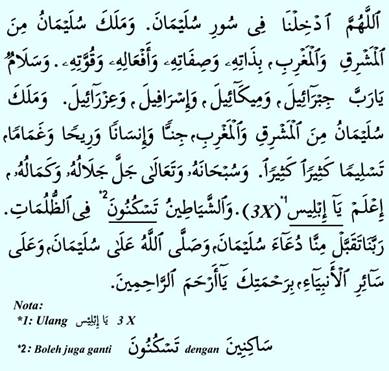 اَللَّهُمَّ اَدْخِلْنَا فِى سُورِ سُلَيْمَانَ. وَمَلَكَ سُلَيْمَانُ مِنَ
الْمَشْرِقِ وَالْمَغْرِبِ، بِذَاتِهِ، وَصِفَاتِهِ، وَأَفْعَالِهِ، وَقُوَّتِهِ. وَسَلَامٌ
يَارَبَّ جِبْرَائِيلَ، وَمِيكَآئِيلَ، وَإِسْرَافِيلَ، وَعِزْرَائِيلَ. وَمَلَكَ
سُلَيْمَانُ مِنَ الْمَشْرِقِ وَالْمَغْرِبِ، جِنًّا وَإِنْسَانًا وَرِيحًا وَغَمَامًا،
تَسْلِيمًا كَثِيرًا كَثِيرًا. وَسُبْحَانَهُ، وَتَعَالَى جَلَّ جَلَالُهُ، وَكَمَالُهُ،
إِعْلَمْ يَآ إِبْلِيس *1(3X). وَالشَّيَاطِينُ تَسْكُنُونَ *2 فِى الظُّلُمَاتِ.
رَبَّنَاتَقَبَّلْ مِنَّا دُعَآءَ سُلَيْمَانَ، وَصَلَّى اللَّهُ عَلَىٰ سُلَيْمَانَ، وَعَلَى
سَائِرِ الْأَنْبِيَآءِ، بِرَحْمَتِكَ يَاأَرْحَمَ الرَّاحِمِينَ.
Nota:
*1: Ulang يَآ إِبْلِيس 3 X
*2: Boleh juga ganti تَسْكُنُونَ dengan سَاكِنِينَ